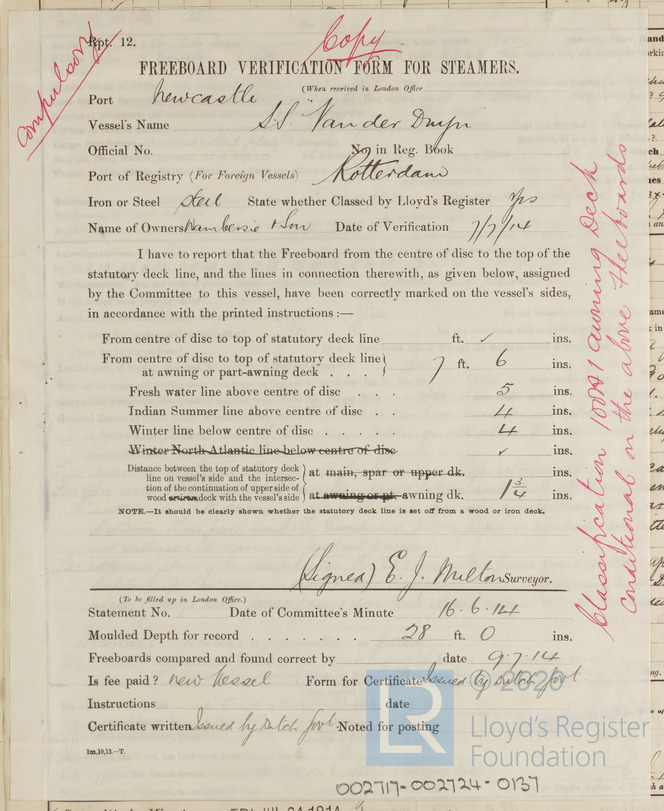 Rpt. 12.
Copy
compulsory
FREEBOARD VERIFICATION FORM FOR STEAMERS.
(When received in London Office
Port Newcastle
Vessel's Name S.S. "Van der Duyn
Official No. No. in Reg. Book
Port of Registry (For Foreign Vessels) Rotterdam
Iron or Steel Steel State whether Classed by Lloyd's Register Yes
Name of Owners Wambersie & Son Date of Verification 7/7/14
I have to report that the Freeboard from the centre of disc to the top of the
statutory deck line, and the lines in connection therewith, as given below, assigned
by the Committee to this vessel, have been correctly marked on the vessel's sides,
in accordance with the printed instructions :—
From centre of disc to top of statutory deck line ft. ✓ ins.
From centre of disc to top of statutory deck line
at awning or part-awning deck . . . 7 ft. 6 ins.
Fresh water line above centre of disc . . . 5 ins.
Indian Summer line above centre of disc . . 4 ins.
Winter line below centre of disc . . . . . 4 ins.
Winter North Atlantic line below centre of disc ✓ ins.
Distance between the top of statutory deck
line on vessel's side and the intersec-
tion of the continuation of upper side of
wood or iron deck with the vessel's side
at main, spar or upper dk. ins.
at awning or pt. awning dk. 1 3/4 ins.
NOTE.—It should be clearly shown whether the statutory deck line is set off from a wood or iron deck.
(Signed) E. J. Milton Surveyor.
(To be filled up in London Office.)
Statement No. Date of Committee's Minute 16.6.14
Moulded Depth for record . . . . . . . 28 ft. 0 ins.
Freeboards compared and found correct by date 9.7.14
Is fee paid? New Vessel Form for Certificate Issued by Dutch Govt.
Instructions date
Certificate written Issued by Dutch Govt. Noted for posting
1m,10,13.—T.
Classification 100A1 Awning Deck
conditional on the above freeboards
LR
© 2020
Lloyd's Register
Foundation
002717-002724-0137